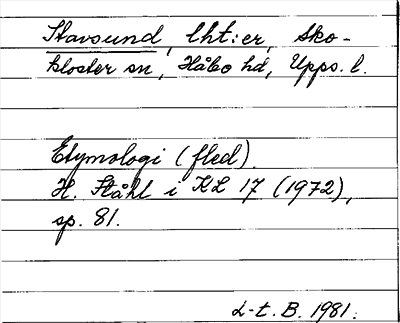 Stavsund, lht:er, Sko-
kloster sn, Håbo hd, Upps. l.
Etymologi (fled).
H. Ståhl i KL 17 (1972),
sp. 81.
L-t. B. 1981.